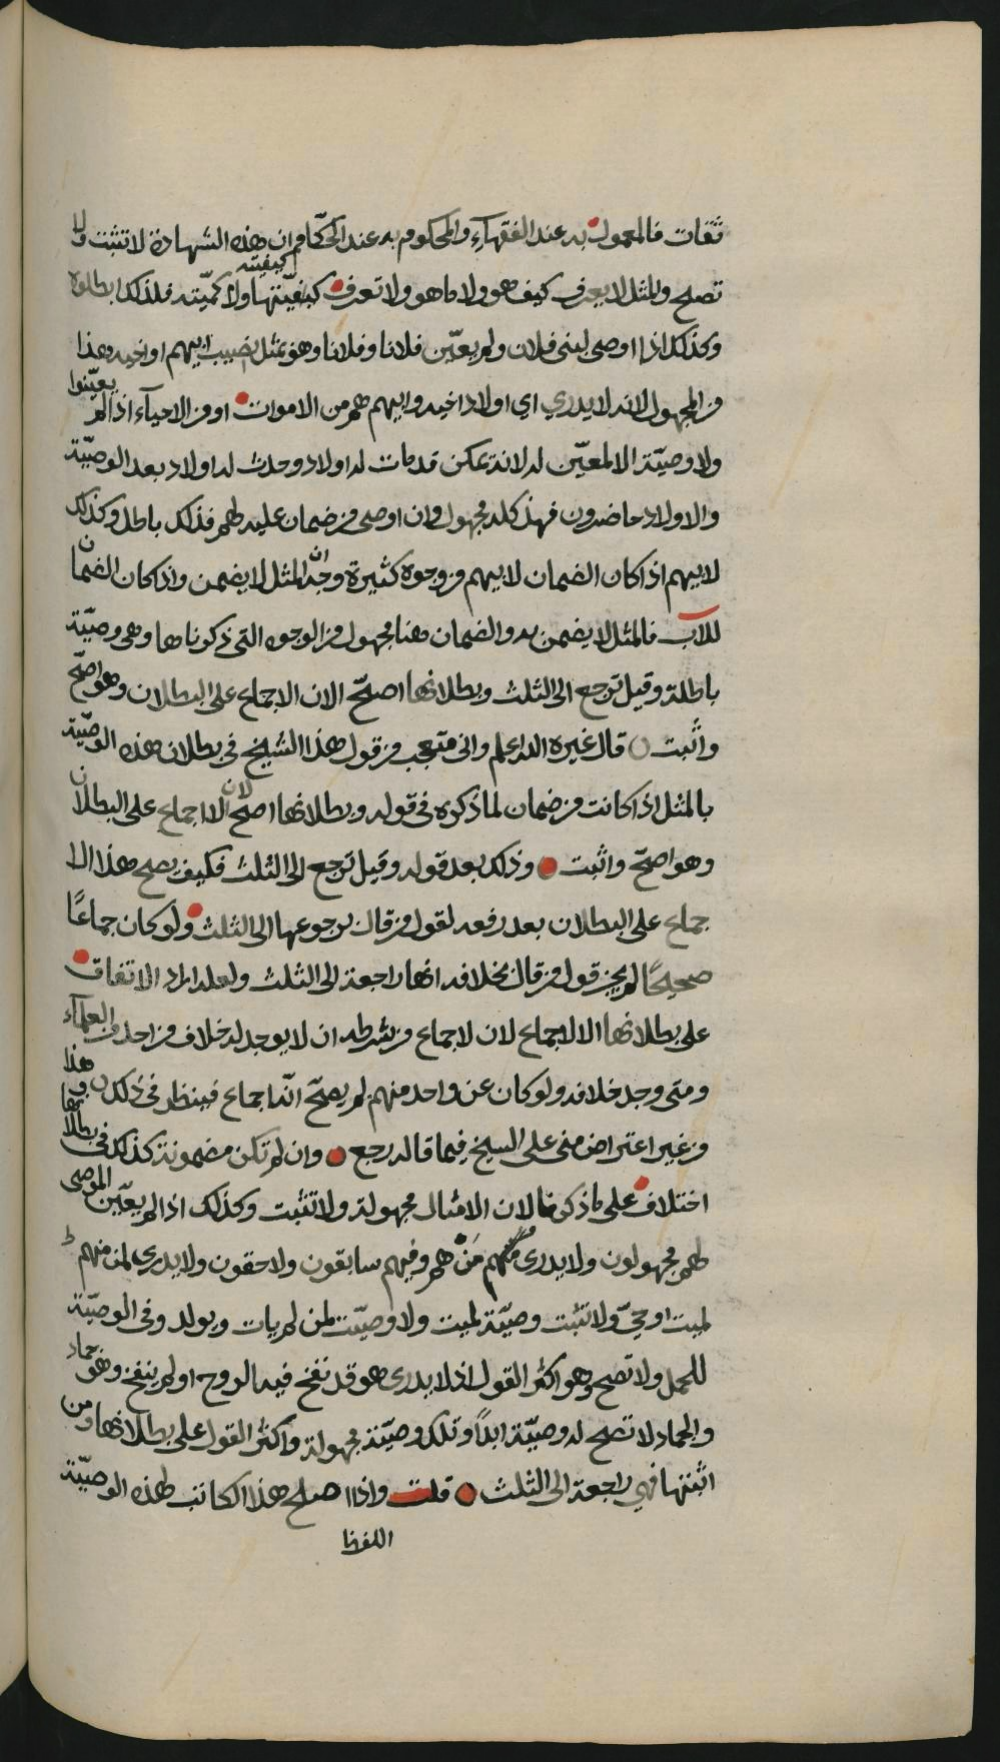 ثقات فالمعمول به عند الفقهاء والمحكوم به عند الحكّام ان هذه الشهادة لا تثبت ولا
كيفيته
تصلح والمثل لا يعرف كيف هو ولا ما هو ولا تعرف كيفيّتها ولا كميّته فلذلك ابطلوه
وكذلك اذا اوصى لبني فلان ولم يعيّن فلانا وفلانا وهو بمثل نصيب ابيهم او اخيه وهذا
من المجهول لانه لا يدري اي اولاد اخيه وايهم هم من الاموات او من الاحياء اذا لم يعيّنوا
ولا وصيّة الا لمعيّن له لانه يمكن قد مات له اولاد وحدث له اولاد بعد الوصيّة
والاولاد حاضرون فهذ كله مجهول وان اوصى من ضمان عليه لهم فذلك باطل وكذلك
لابيهم اذا كان الضمان لابيهم من وجوه كثيرة وجه ان المثل لا يضمن واذ كان الضمان
للاب فالمثل لا يضمن به والضمان هنا مجهول من الوجوه التي ذكرناها وهي وصيّة
باطلة وقيل ترجع الى الثلث وبطلانها اصحّ الان الاجماع على البطلان وهو اصحّ
واثبت ن قال غيره الله اعلم واني متعجب من قول هذا الشيخ في بطلان هذه الوصيّة
بالمثل اذا كانت من ضمان لما ذكره في قوله وبطلانها اصح لان الاجماع على البطلان
وهو اصحّ واثبت وذلك بعد قوله وقيل ترجع الى الثلث فكيف يصح هذا الا
جماع على البطلان بعد رفعه لقول من قال برجوعها الى الثلث ولو كان جماعًا
صحيحًا لم يجز قول من قال بخلافه انها راجعة الى الثلث ولعله اراد الاتفاق
على بطلانها الا الاجماع لان لاجماع من شرطه ان لا يوجد له خلاف من احد من العلماء
ومتى وجد خلافه ولو كان عن واحد منهم لم يصحّ انّه اجماع فينظر في ذلك ن وهذا
من غير اعتراض مني على الشيخ فيما قاله رجع وان لم تكن مضمونة كذلك في بطلانها
اختلاف على ما ذكرنا لان الامثال مجهولة ولا تثبت وكذلك اذا لم يعيّن الموصى
لهم مجهولون ولا يدري منهم مَنْ هم وفيهم سابقون ولاحقون ولا يدري لمن منهم
لميت او حيّ ولا تثبت وصيّة لميت ولا وصيّت لمن لم يات ويولد وفي الوصيّة
للحمل ولا تصح وهو اكثر القول اذ لا يدري هو قد نفخ فيه الروح او لم ينفخ وهو جماد
والجماد لا تصح له وصيّة ابداً وتلك وصيّة مجهولة واكثر القول على بطلانها ومن
اثبتها فهي راجعة الى الثلث قلت واذا اصلح هذا الكاتب لهذه الوصيّة